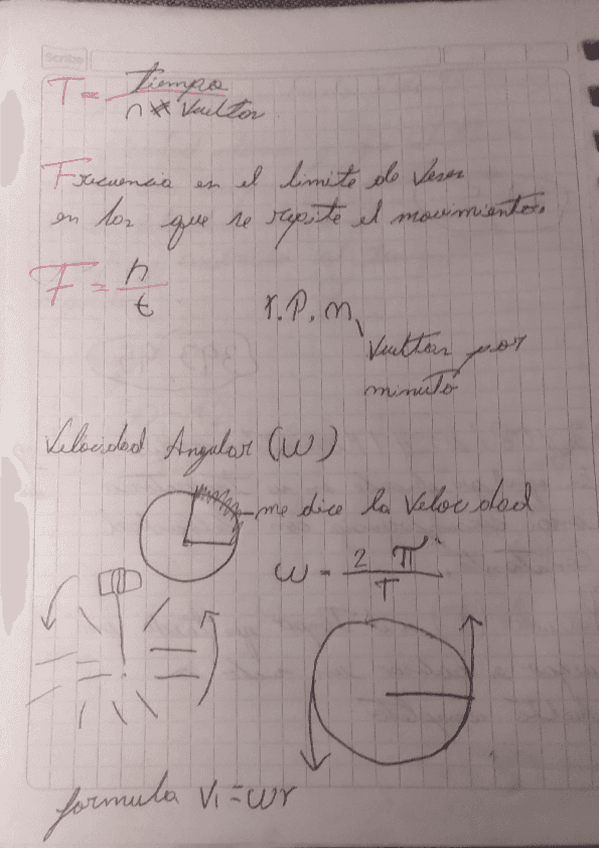 scribe
T = tiempo
n# Vueltas
Frecuencia es el limite de Veses
en las que se repite el movimiento.
F = n
t
r.p.m.
Vueltas por
minuto
Velocidad Angular (ω)
me dice la Velocidad
ω = 2 π
T
formula V₁ = ωr